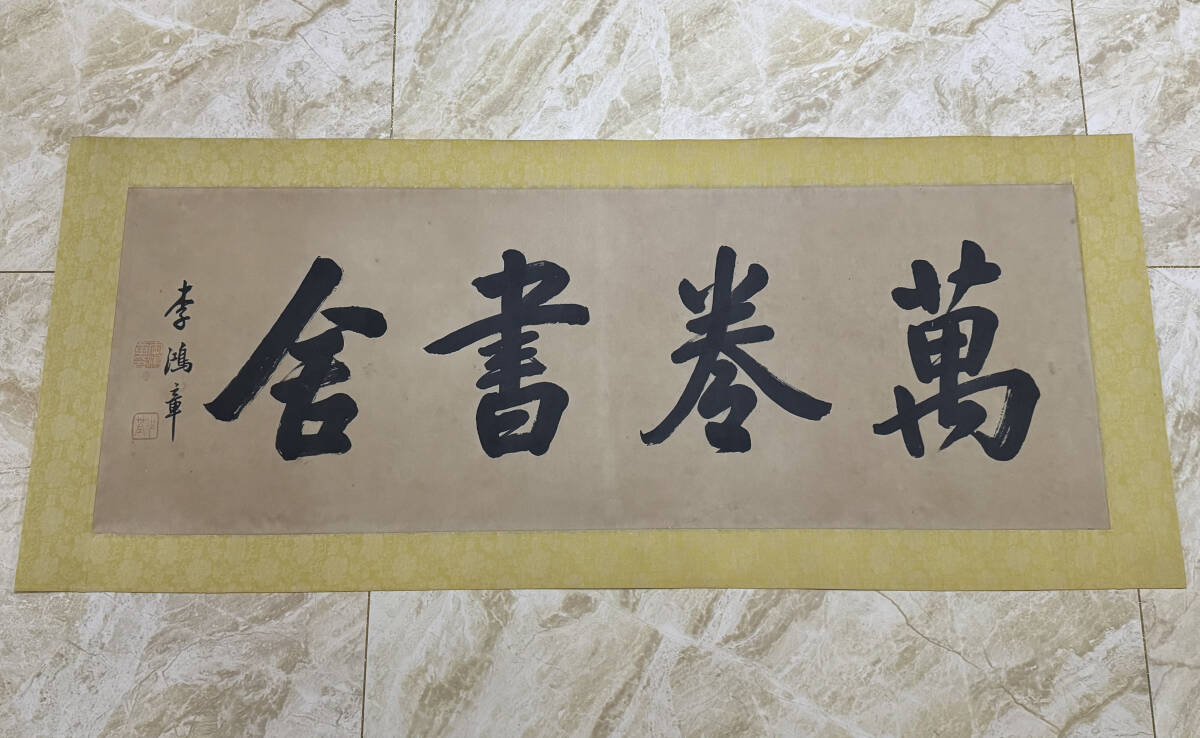 萬卷書舍
李鴻章